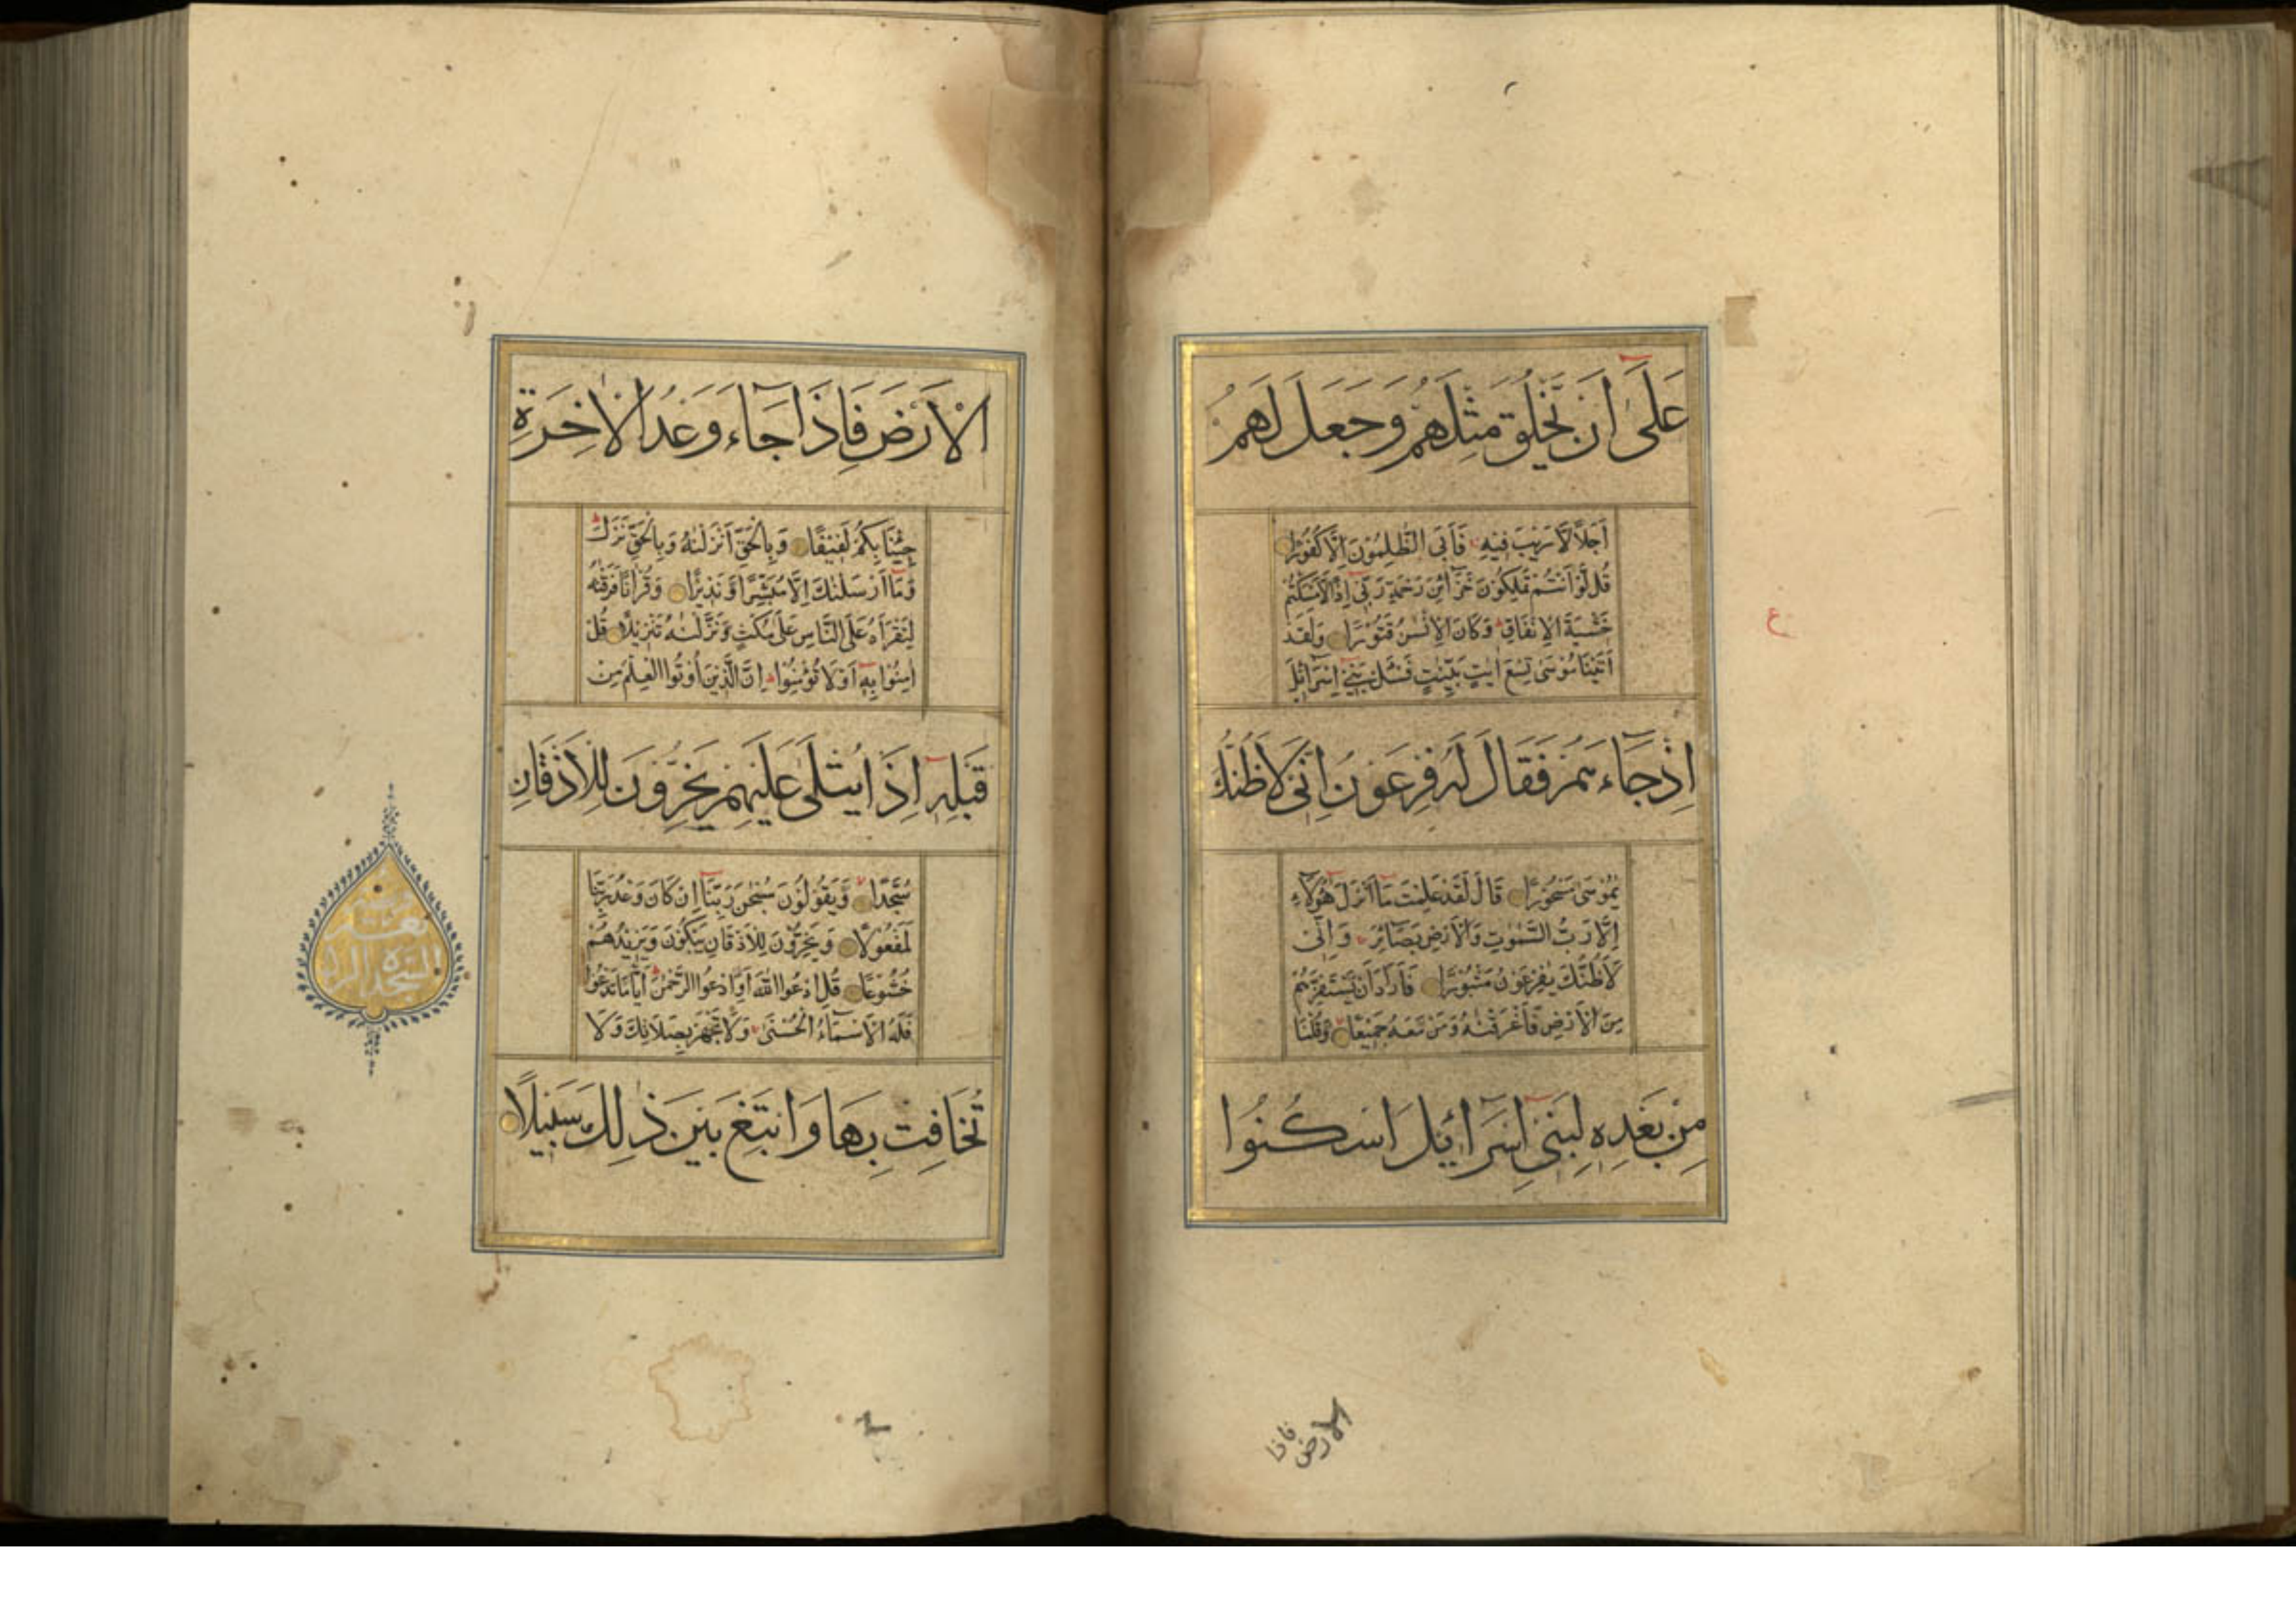 عَلَىٰ أَنْ يَخْلُقَ مِثْلَهُمْ وَجَعَلَ لَهُمْ
أَجَلًا لَا رَيْبَ فِيهِ فَأَبَى الظّٰلِمُونَ إِلَّا كُفُورًا
قُلْ لَوْ أَنْتُمْ تَمْلِكُونَ خَزَائِنَ رَحْمَةِ رَبِّي إِذًا لَأَمْسَكْتُمْ
خَشْيَةَ الْإِنْفَاقِ وَكَانَ الْإِنْسٰنُ قَتُورًا وَلَقَدْ
اٰتَيْنَا مُوسَىٰ تِسْعَ اٰيٰتٍ بَيِّنٰتٍ فَسْئَلْ بَنِي إِسْرَائِيلَ
إِذْ جَاءَهُمْ فَقَالَ لَهُ فِرْعَوْنُ إِنِّي لَأَظُنُّكَ
يٰمُوسَىٰ مَسْحُورًا قَالَ لَقَدْ عَلِمْتَ مَا أَنْزَلَ هٰؤُلَاءِ
إِلَّا رَبُّ السَّمٰوٰتِ وَالْأَرْضِ بَصَائِرَ وَإِنِّي
لَأَظُنُّكَ يٰفِرْعَوْنُ مَثْبُورًا فَأَرَادَ أَنْ يَسْتَفِزَّهُمْ
مِنَ الْأَرْضِ فَأَغْرَقْنٰهُ وَمَنْ مَعَهُ جَمِيعًا وَقُلْنَا
مِنْ بَعْدِهِ لِبَنِي إِسْرَائِيلَ اسْكُنُوا
الارض فاذا
ع
الْأَرْضَ فَإِذَا جَاءَ وَعْدُ الْاٰخِرَةِ
جِئْنَا بِكُمْ لَفِيفًا وَبِالْحَقِّ أَنْزَلْنٰهُ وَبِالْحَقِّ نَزَلَ
وَمَا أَرْسَلْنٰكَ إِلَّا مُبَشِّرًا وَنَذِيرًا وَقُرْاٰنًا فَرَقْنٰهُ
لِتَقْرَأَهُ عَلَى النَّاسِ عَلَىٰ مُكْثٍ وَنَزَّلْنٰهُ تَنْزِيلًا قُلْ
اٰمِنُوا بِهِ أَوْ لَا تُؤْمِنُوا إِنَّ الَّذِينَ أُوتُوا الْعِلْمَ مِنْ
قَبْلِهِ إِذَا يُتْلَىٰ عَلَيْهِمْ يَخِرُّونَ لِلْأَذْقَانِ
سُجَّدًا وَيَقُولُونَ سُبْحٰنَ رَبِّنَا إِنْ كَانَ وَعْدُ رَبِّنَا
لَمَفْعُولًا وَيَخِرُّونَ لِلْأَذْقَانِ يَبْكُونَ وَيَزِيدُهُمْ
خُشُوعًا قُلِ ادْعُوا اللّٰهَ أَوِ ادْعُوا الرَّحْمٰنَ أَيًّا مَا تَدْعُوا
فَلَهُ الْأَسْمَاءُ الْحُسْنَىٰ وَلَا تَجْهَرْ بِصَلَاتِكَ وَلَا
تُخَافِتْ بِهَا وَابْتَغِ بَيْنَ ذٰلِكَ سَبِيلًا